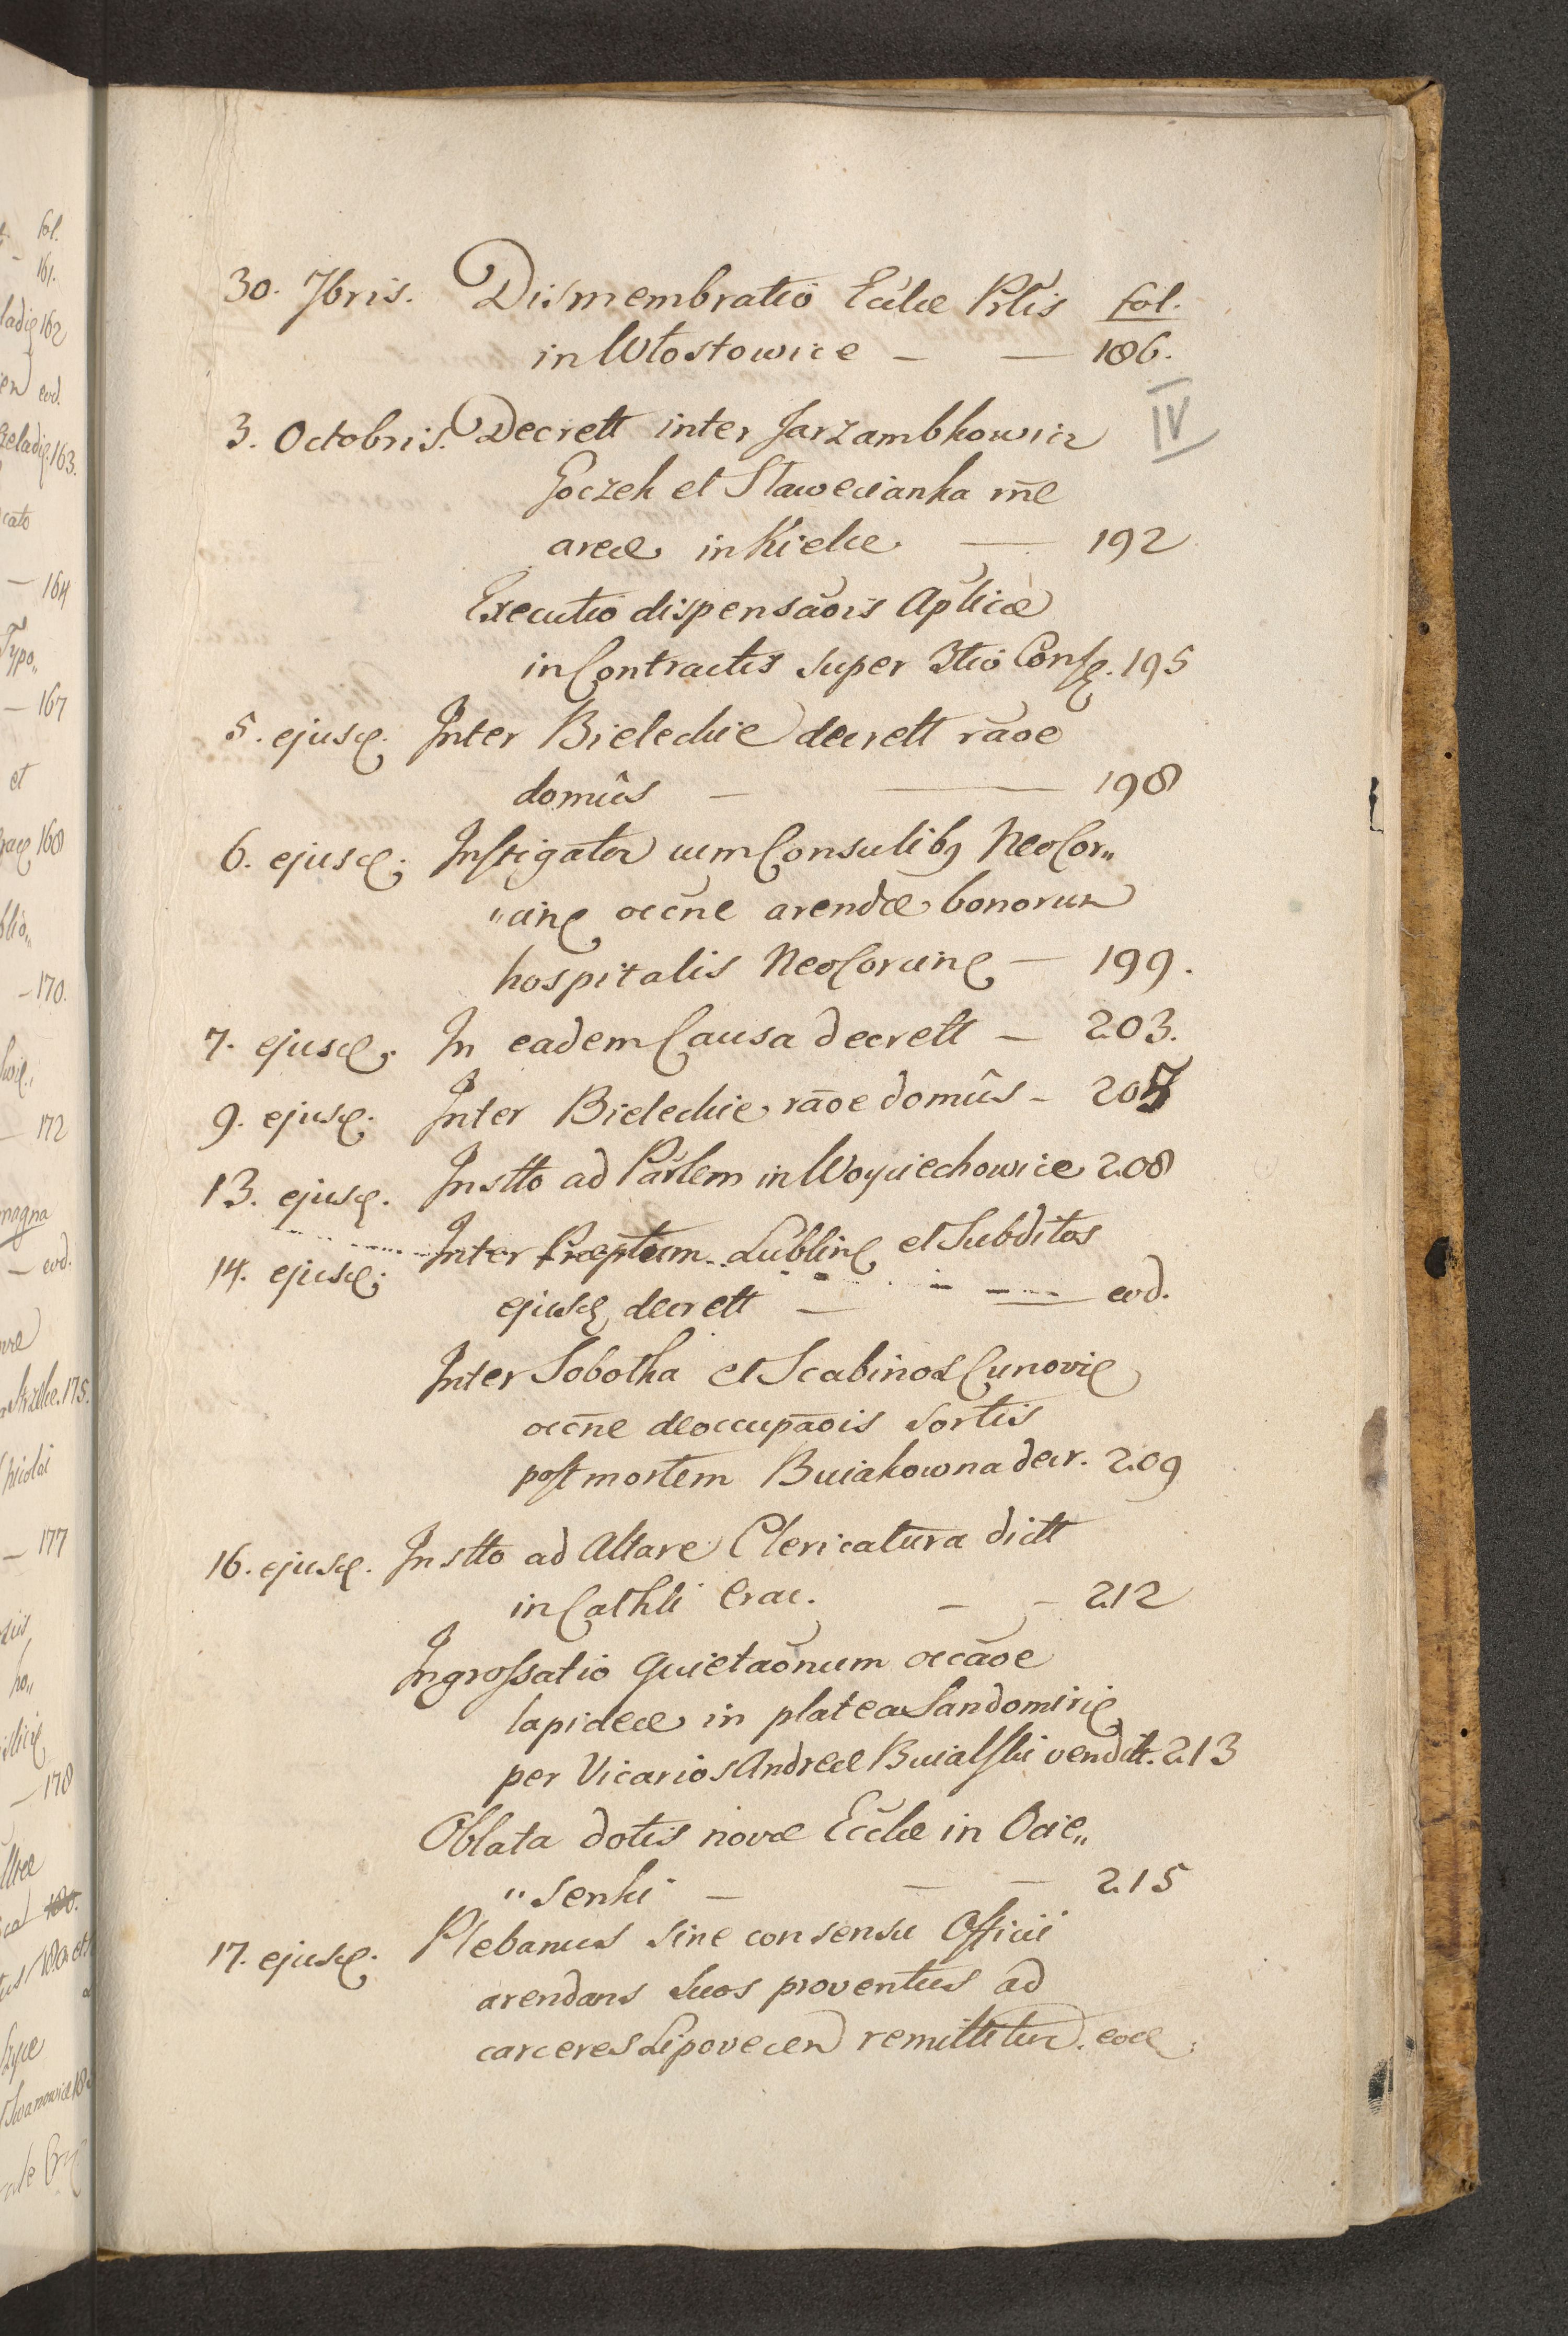 30. 7bris. Dismembratio Ecclæ Prlis fol.
in Włostowice — — 186.
IV
3. Octobris. Decrett inter Jarzambkowicz
Goczek et Stawecianka rñe
areæ in Kielce — 192
Executio dispensãois Aplicæ
in Contractis super 3tio Consg. 195
5. ejusd. Inter Bieleckie decrett rãoe
domûs — — 198
6. ejusd. Instigator cum Consulibg NeoCor„
„cinę occñe arendæ bonorum
hospitalis NeoCorcinę — 199.
7. ejusd. In eadem Causa decrett — 203.
9. ejusd. Inter Bieleckie rãoe domûs — 207
13. ejusd. Instto ad Parlem in Woyciechowice 208
14. ejusd. Inter Præptum Lublinę et Subditos
ejusd decrett — — eod.
Inter Sobotka et Scabinos Cunovię
occñe deoccupãois sortis
post mortem Buiakowna decr. 209
16. ejusd. Instto ad Altare Clericatura dictt
in Cathli Crac. — — 212
Ingrossatio quietaõnum occãoe
lapideæ in platea Sandomirię
per Vicarios Andreæ Buialski vendit. 213
Oblata dotis novæ Ecclæ in Ocie„
„senki — — — 215
17. ejusd. Plebanus sine consensu Officii
arendans suos proventus ad
carceres Lipovecen remittitur. eod.